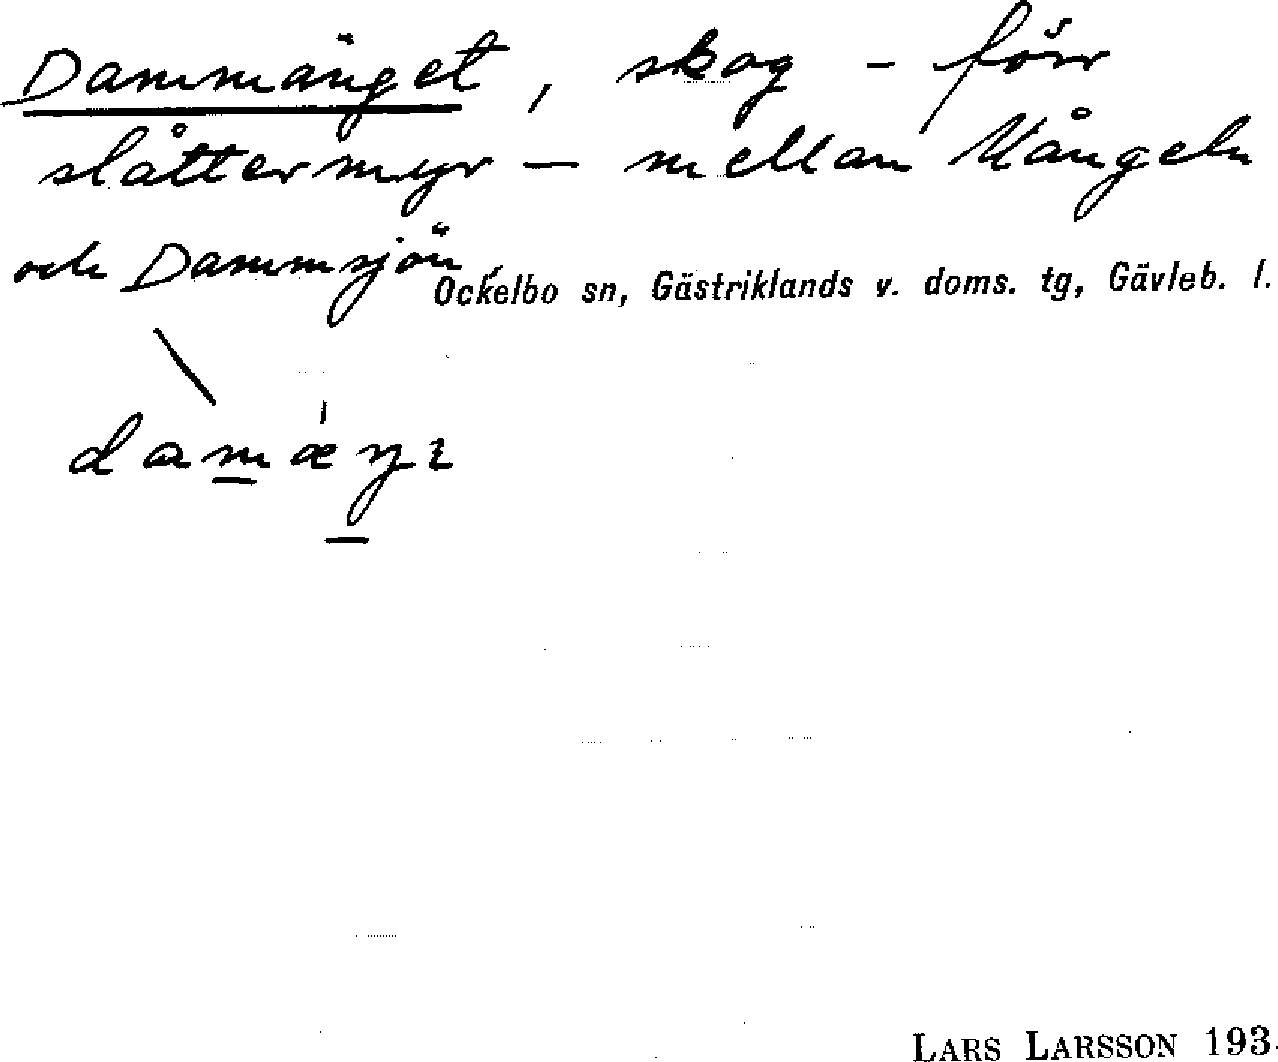 Dammänget, skog - förr
slåttermyr - mellan Kångeln
och Dammsjön.
Ockelbo sn, Gästriklands v. doms. tg, Gävleb. l.
LARS LARSSON 193